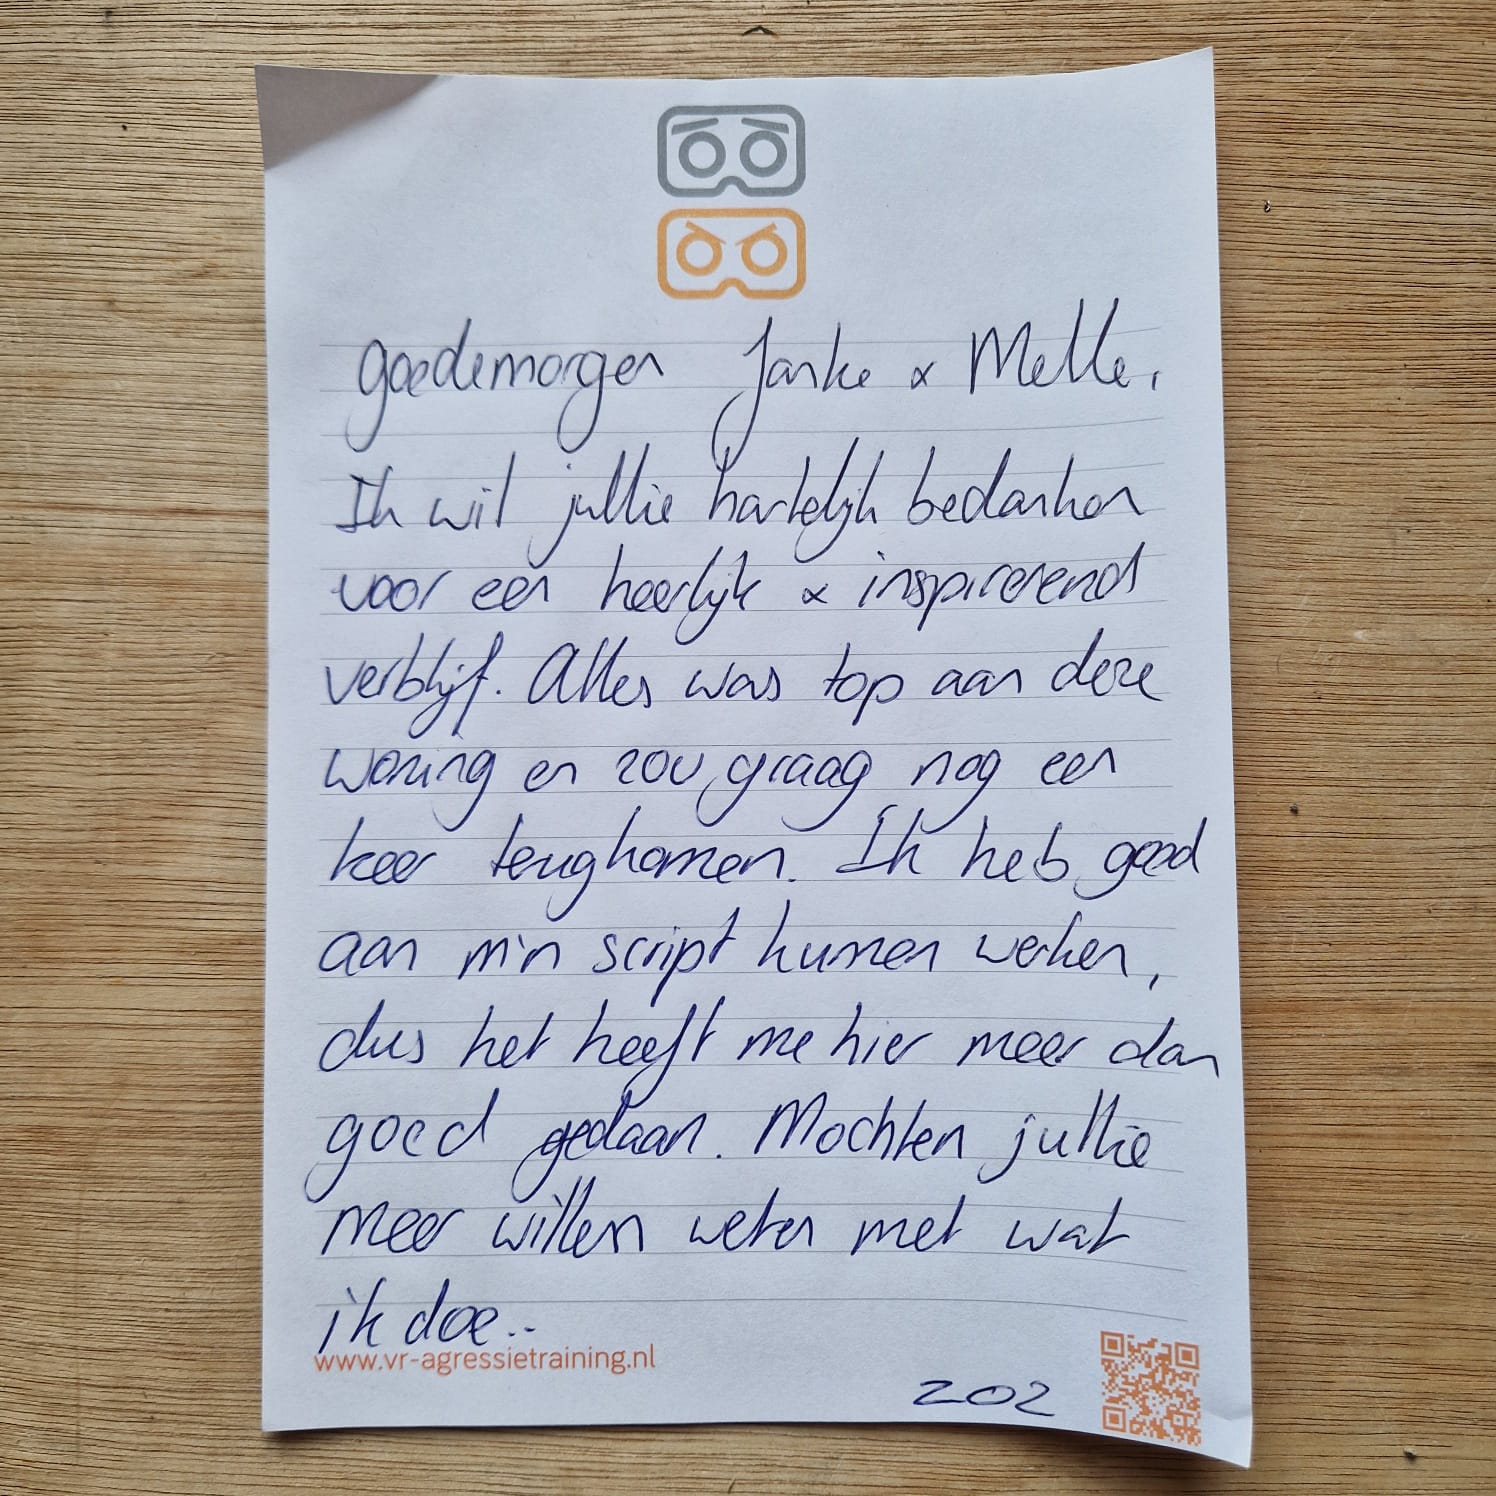 goedemorgen Janke & Melle,
Ik wil jullie hartelijk bedanken
voor een heerlijk & inspirerend
verblijf. Alles was top aan deze
woning en zou graag nog een
keer terugkomen. Ik heb goed
aan m'n script kunnen werken,
dus het heeft me hier meer dan
goed gedaan. Mochten jullie
meer willen weten met wat
ik doe..
www.vr-agressietraining.nl
202